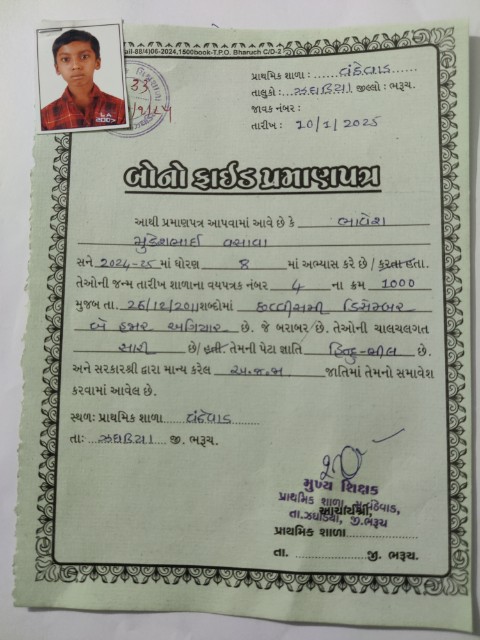 ail-88/4)06-2024,1500book-T.P.O. Bharuch C/D-2
પ્રાથમિક શાળા : વંઠેવાડ
તાલુકો : ઝઘડિયા જીલ્લો : ભરૂચ.
જાવક નંબર :
તારીખ : 10/1/2025
33
બોનોફાઈડ પ્રમાણપત્ર
આથી પ્રમાણપત્ર આપવામાં આવે છે કે ભાવેશ
મુકેશભાઈ વસાવા
સને 2024-25 માં ધોરણ 8 માં અભ્યાસ કરે છે / કરતા હતા.
તેઓની જન્મ તારીખ શાળાના વયપત્રક નંબર 4 ના ક્રમ 1000
મુજબ તા. 26/12/2011 શબ્દોમાં છવ્વીસમી ડિસેમ્બર
બે હજાર અગિયાર છે. જે બરાબર છે. તેઓની ચાલચલગત
સારી છે/ હતી. તેમની પેટા જ્ઞાતિ હિન્દુ-ભીલ છે.
અને સરકારશ્રી દ્વારા માન્ય કરેલ અ.જ.જા જાતિમાં તેમનો સમાવેશ
કરવામાં આવેલ છે.
સ્થળ: પ્રાથમિક શાળા વંઠેવાડ
તા: ઝઘડિયા જી. ભરૂચ.
મુખ્ય શિક્ષક
પ્રાથમિક શાળા, વંઠેવાડ,
તા.ઝઘડિયા, જી.ભરૂચ
આચાર્યશ્રી,
પ્રાથમિક શાળા
તા. જી. ભરૂચ.